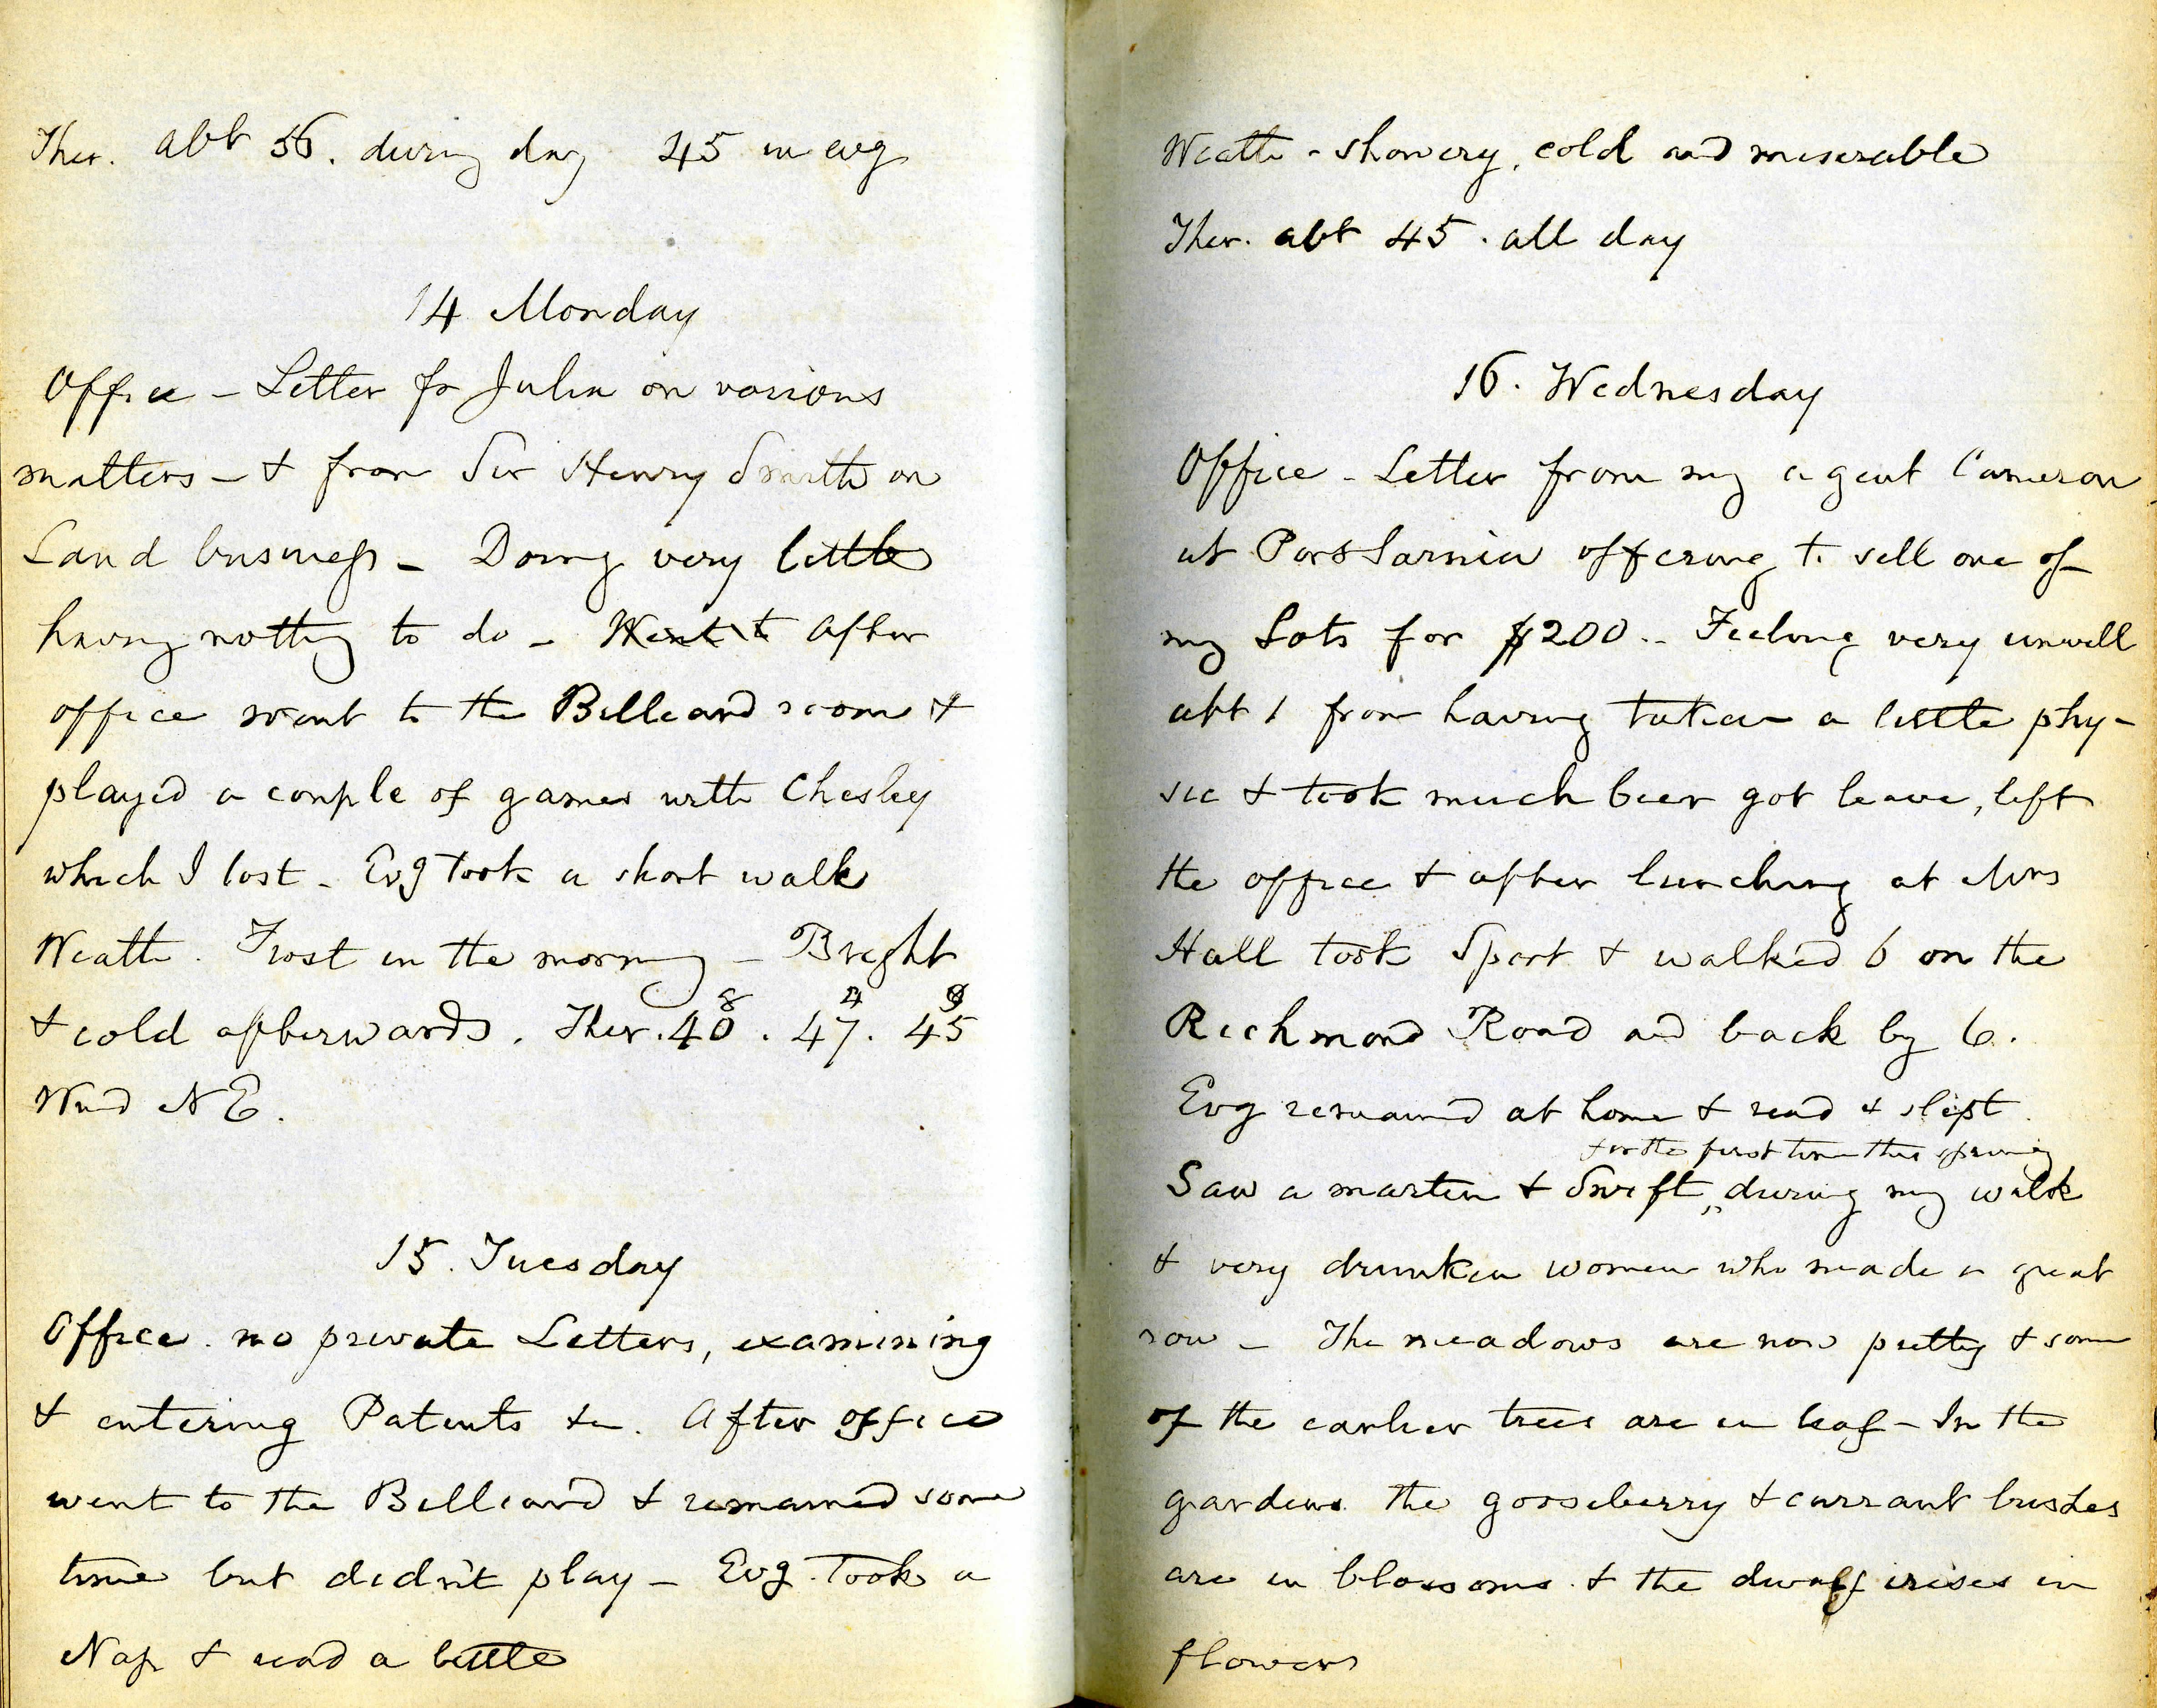 Ther. abt 56. during day 45 in evg
14 Monday
Office - Letter fr Julia on various
matters - & from Sir Henry Smith on
Land business - Doing very little
having nothing to do - Went to After
office went to the Billiard room &
played a couple of games with Chesley
which I lost - Evg took a short walk
Weath. Frost in the morning - Bright
8 2 9
& cold afterwards. Ther. 40. 47. 45
Wind N E.
15. Tuesday
Office. no private Letters, examining
& entering Patents &c. After office
went to the Billiard & remained some
time but didn't play - Evg. Took a
Nap & read a little
Weath - showery, cold and miserable
Ther. abt 45. all day
16. Wednesday
Office - Letter from my agent Cameron
at Port Sarnia offering to sell one of
my Lots for $200 - Feeling very unwell
abt 1 from having taken a little phy-
sic & took much beer got leave, left
the office & after lunching at Mrs
Hall took Sport & walked 6 on the
Richmond Road and back by 6.
Evg remained at home & read & slept
for the first time this spring
Saw a martin & Swift, during my walk
& very drunken women who made a great
row - The meadows are now pretty & some
of the earlier trees are in leaf - In the
gardens the gooseberry & currant bushes
are in blossoms & the dwarf irises in
flowers